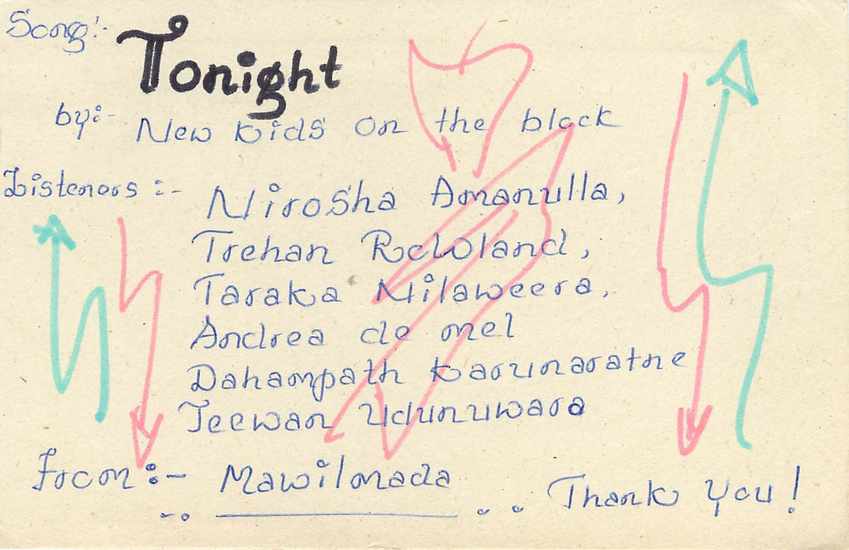 Song:- Tonight
by:- New kids on the block
Listeners :- Nirosha Amanulla,
Trehan Rowland,
Taraka Nilaweera,
Andrea de mel
Dahampath karunaratne
Jeewan Udunuwara
From:- Mawilmada
Thank you!